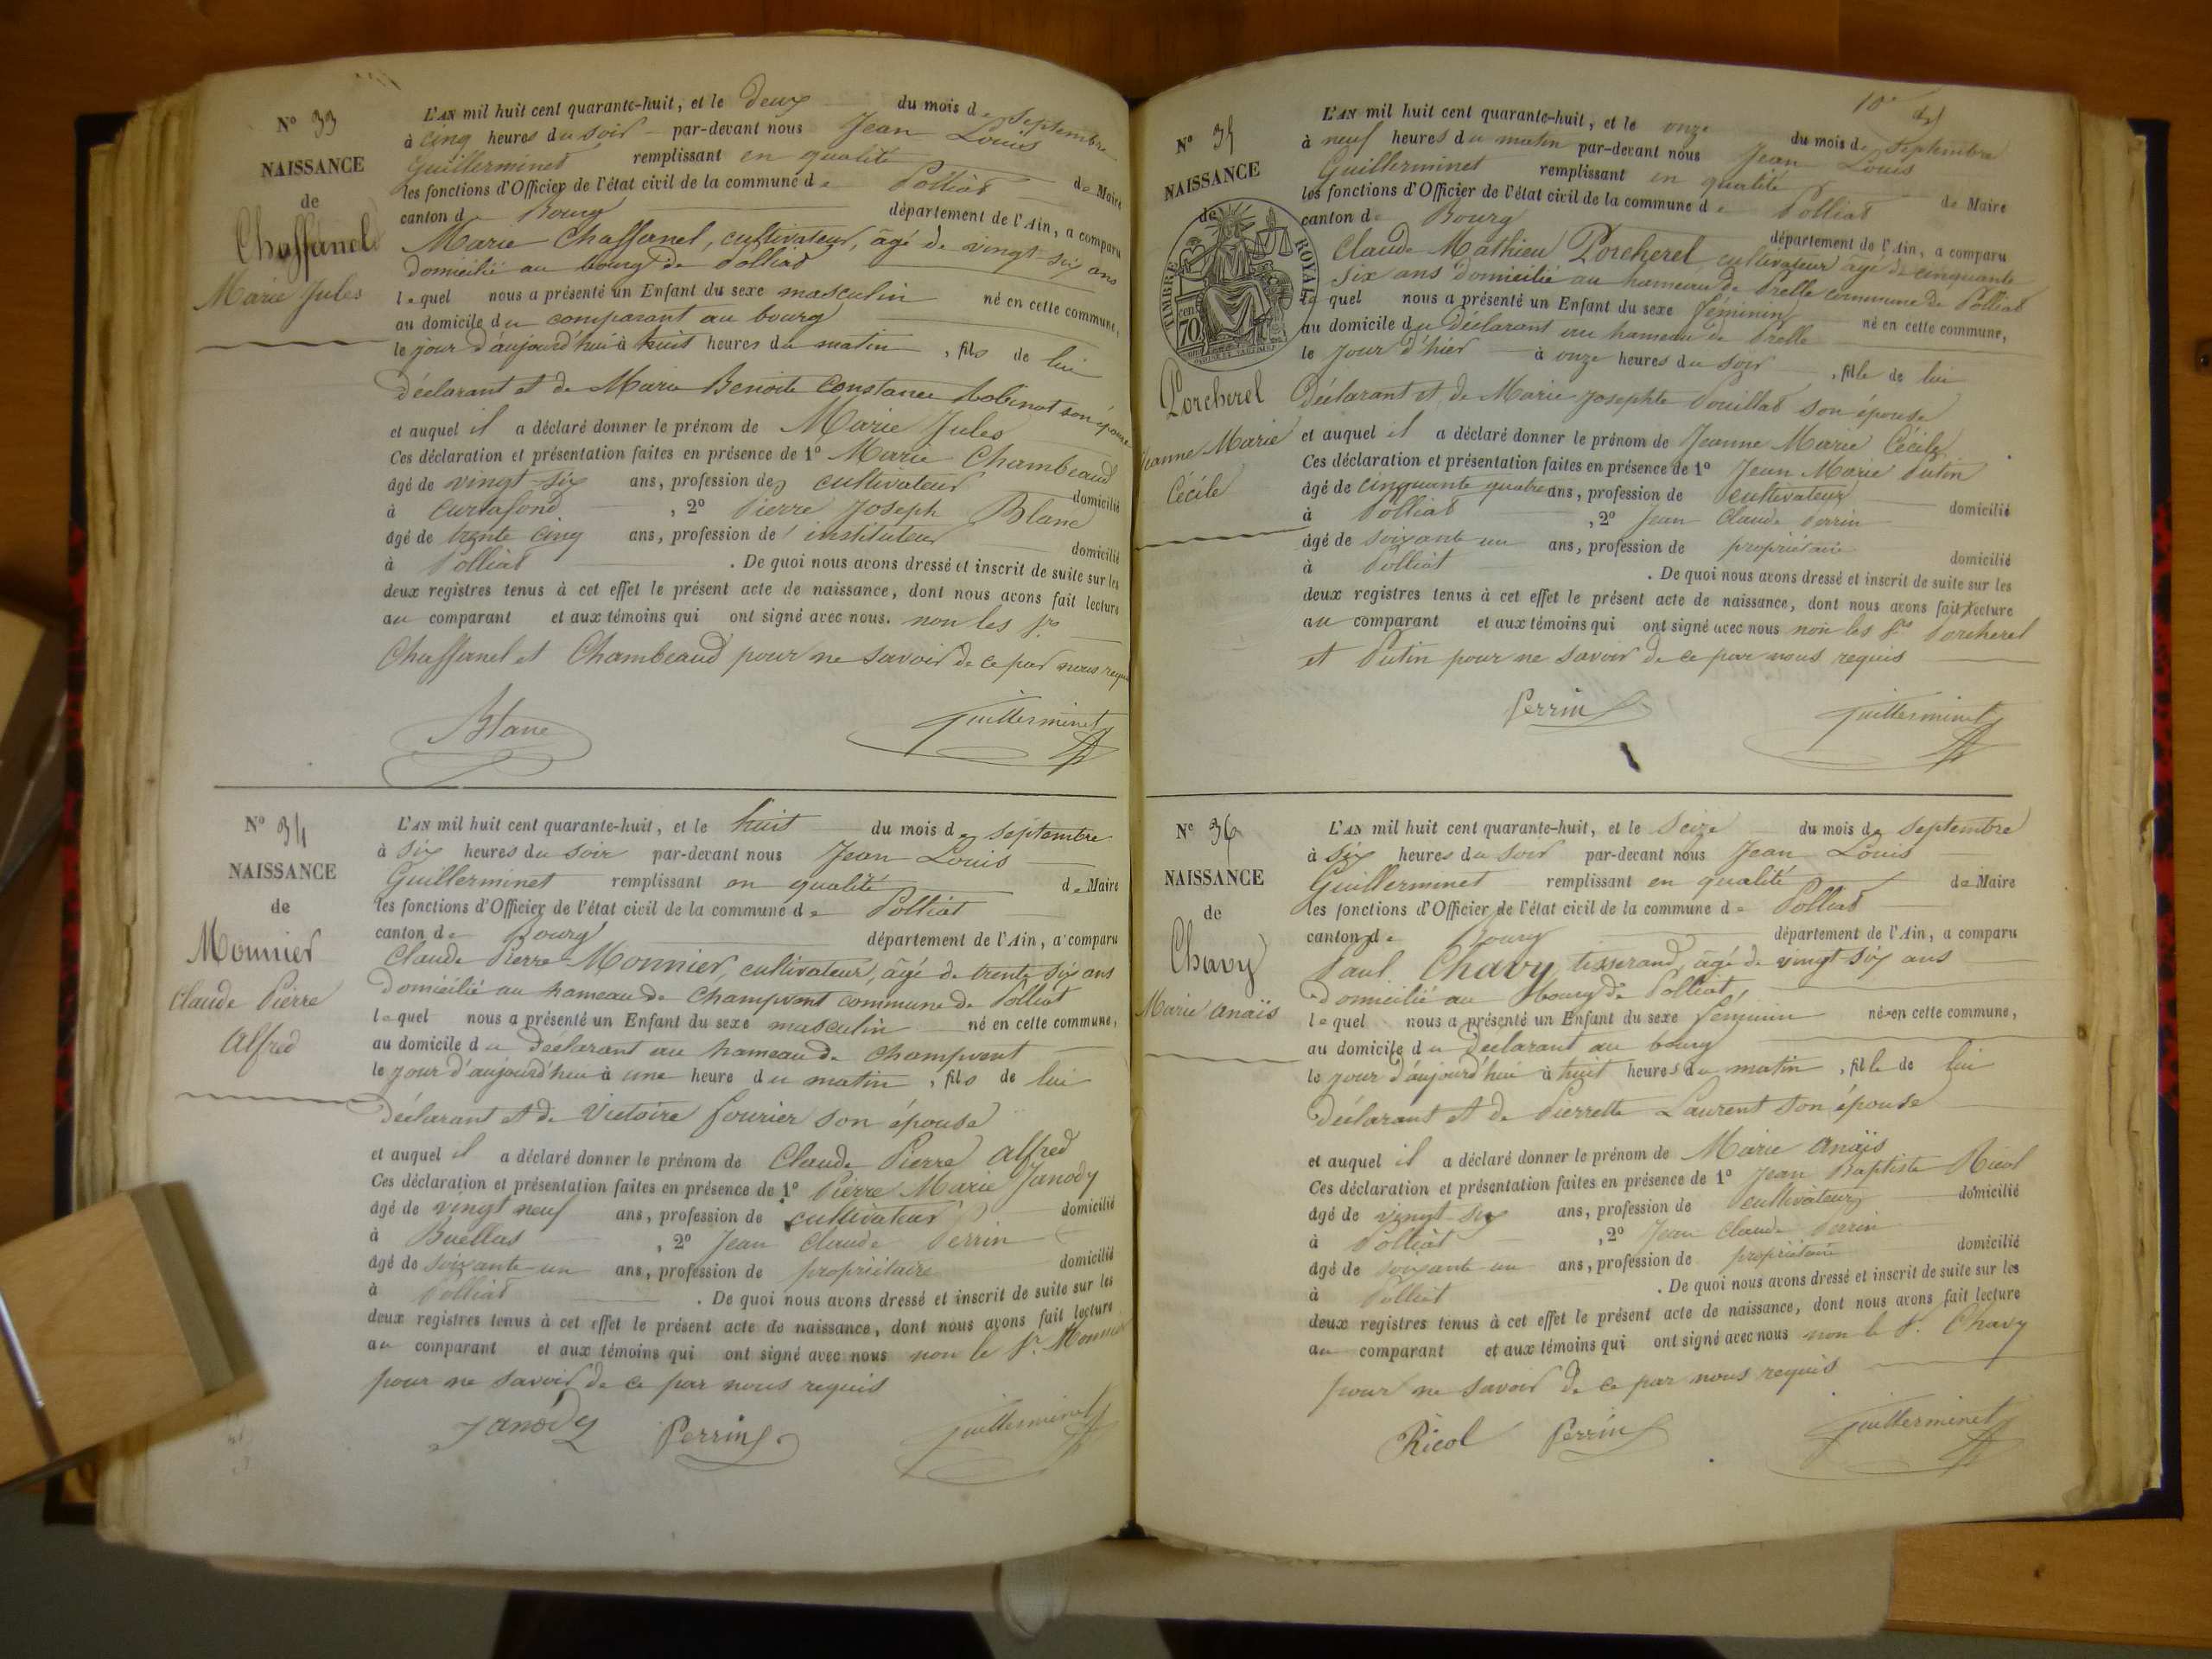 N° 33
NAISSANCE
de
Chaffanel
Marie Jules
L'AN mil huit cent quarante-huit, et le deux du mois de Septembre
à cinq heures du soir par-devant nous Jean Louis
Guillerminet remplissant en qualité de Maire
les fonctions d'Officier de l'état civil de la commune de Polliat
canton de Bourg département de l'Ain, a comparu
Marie Chaffanel, cultivateur, âgé de vingt-six ans
domicilié au bourg de Polliat
lequel nous a présenté un Enfant du sexe masculin né en cette commune,
au domicile du comparant au bourg
le jour d'aujourd'hui à huit heures du matin, fils de lui
Déclarant et de Marie Benoite Constance son épouse
et auquel il a déclaré donner le prénom de Marie Jules
Ces déclaration et présentation faites en présence de 1° Marie Chambeaud
âgé de vingt-six ans, profession de cultivateur domicilié
à Curtafond, 2° Pierre Joseph Blanc
âgé de trente cinq ans, profession d' instituteur domicilié
à Polliat. De quoi nous avons dressé et inscrit de suite sur les
deux registres tenus à cet effet le présent acte de naissance, dont nous avons fait lecture
au comparant et aux témoins qui ont signé avec nous. non les Srs
Chaffanel et Chambeaud pour ne savoir de ce par nous requis
Blanc Guillerminet
N° 34
NAISSANCE
de
Monnier
Claude Pierre
Alfred
L'AN mil huit cent quarante-huit, et le huit du mois de Septembre
à six heures du soir par-devant nous Jean Louis
Guillerminet remplissant en qualité de Maire
les fonctions d'Officier de l'état civil de la commune de Polliat
canton de Bourg département de l'Ain, a comparu
Claude Pierre Monnier, cultivateur, âgé de trente six ans
domicilié au hameau de Champvent commune de Polliat
lequel nous a présenté un Enfant du sexe masculin né en cette commune,
au domicile du déclarant au hameau de Champvent
le jour d'aujourd'hui à une heure du matin, fils de lui
déclarant et de Victoire fourier son épouse
et auquel il a déclaré donner le prénom de Claude Pierre Alfred
Ces déclaration et présentation faites en présence de 1° Pierre Marie Janody
âgé de vingt neuf ans, profession de cultivateur domicilié
à Buellas, 2° Jean Claude Perrin
âgé de soixante-un ans, profession de propriétaire domicilié
à Polliat. De quoi nous avons dressé et inscrit de suite sur les
deux registres tenus à cet effet le présent acte de naissance, dont nous avons fait lecture
au comparant et aux témoins qui ont signé avec nous non le Sr. Monnier
pour ne savoir de ce par nous requis
Janody Perrin Guillerminet
10e
N° 35
NAISSANCE
de
TIMBRE ROYAL
70
Porcherel
Jeanne Marie
Cécile
L'AN mil huit cent quarante-huit, et le onze du mois de Septembre
à neuf heures du matin par-devant nous Jean Louis
Guillerminet remplissant en qualité de Maire
les fonctions d'Officier de l'état civil de la commune de Polliat
canton de Bourg département de l'Ain, a comparu
Claude Mathieu Porcherel cultivateur âgé de cinquante
six ans domicilié au hameau de Prelle commune de Polliat
lequel nous a présenté un Enfant du sexe féminin né en cette commune,
au domicile du déclarant au hameau de Prelle
le jour d'hier à onze heures du soir, fille de lui
Déclarant et de Marie Josephte Pouillat son épouse
et auquel il a déclaré donner le prénom de Jeanne Marie Cécile
Ces déclaration et présentation faites en présence de 1° Jean Marie Putin
âgé de cinquante quatre ans, profession de cultivateur domicilié
à Polliat, 2° Jean Claude Perrin
âgé de soixante un ans, profession de propriétaire domicilié
à Polliat. De quoi nous avons dressé et inscrit de suite sur les
deux registres tenus à cet effet le présent acte de naissance, dont nous avons fait lecture
au comparant et aux témoins qui ont signé avec nous non les Srs Porcherel
et Putin pour ne savoir de ce par nous requis
Perrin Guillerminet
N° 36
NAISSANCE
de
Chavy
Marie Anaïs
L'AN mil huit cent quarante-huit, et le seize du mois de Septembre
à six heures du soir par-devant nous Jean Louis
Guillerminet remplissant en qualité de Maire
les fonctions d'Officier de l'état civil de la commune de Polliat
canton de Bourg département de l'Ain, a comparu
Paul Chavy tisserand, âgé de vingt-six ans
domicilié au bourg de Polliat,
lequel nous a présenté un Enfant du sexe féminin né en cette commune,
au domicile du déclarant au bourg
le jour d'aujourd'hui à huit heures du matin, fille de lui
déclarant et de Pierrette Laurent son épouse
et auquel il a déclaré donner le prénom de Marie Anaïs
Ces déclaration et présentation faites en présence de 1° Jean Baptiste Ricol
âgé de vingt-six ans, profession de cultivateur domicilié
à Polliat, 2° Jean Claude Perrin
âgé de soixante un ans, profession de propriétaire domicilié
à Polliat. De quoi nous avons dressé et inscrit de suite sur les
deux registres tenus à cet effet le présent acte de naissance, dont nous avons fait lecture
au comparant et aux témoins qui ont signé avec nous non le Sr. Chavy
pour ne savoir de ce par nous requis
Ricol Perrin Guillerminet